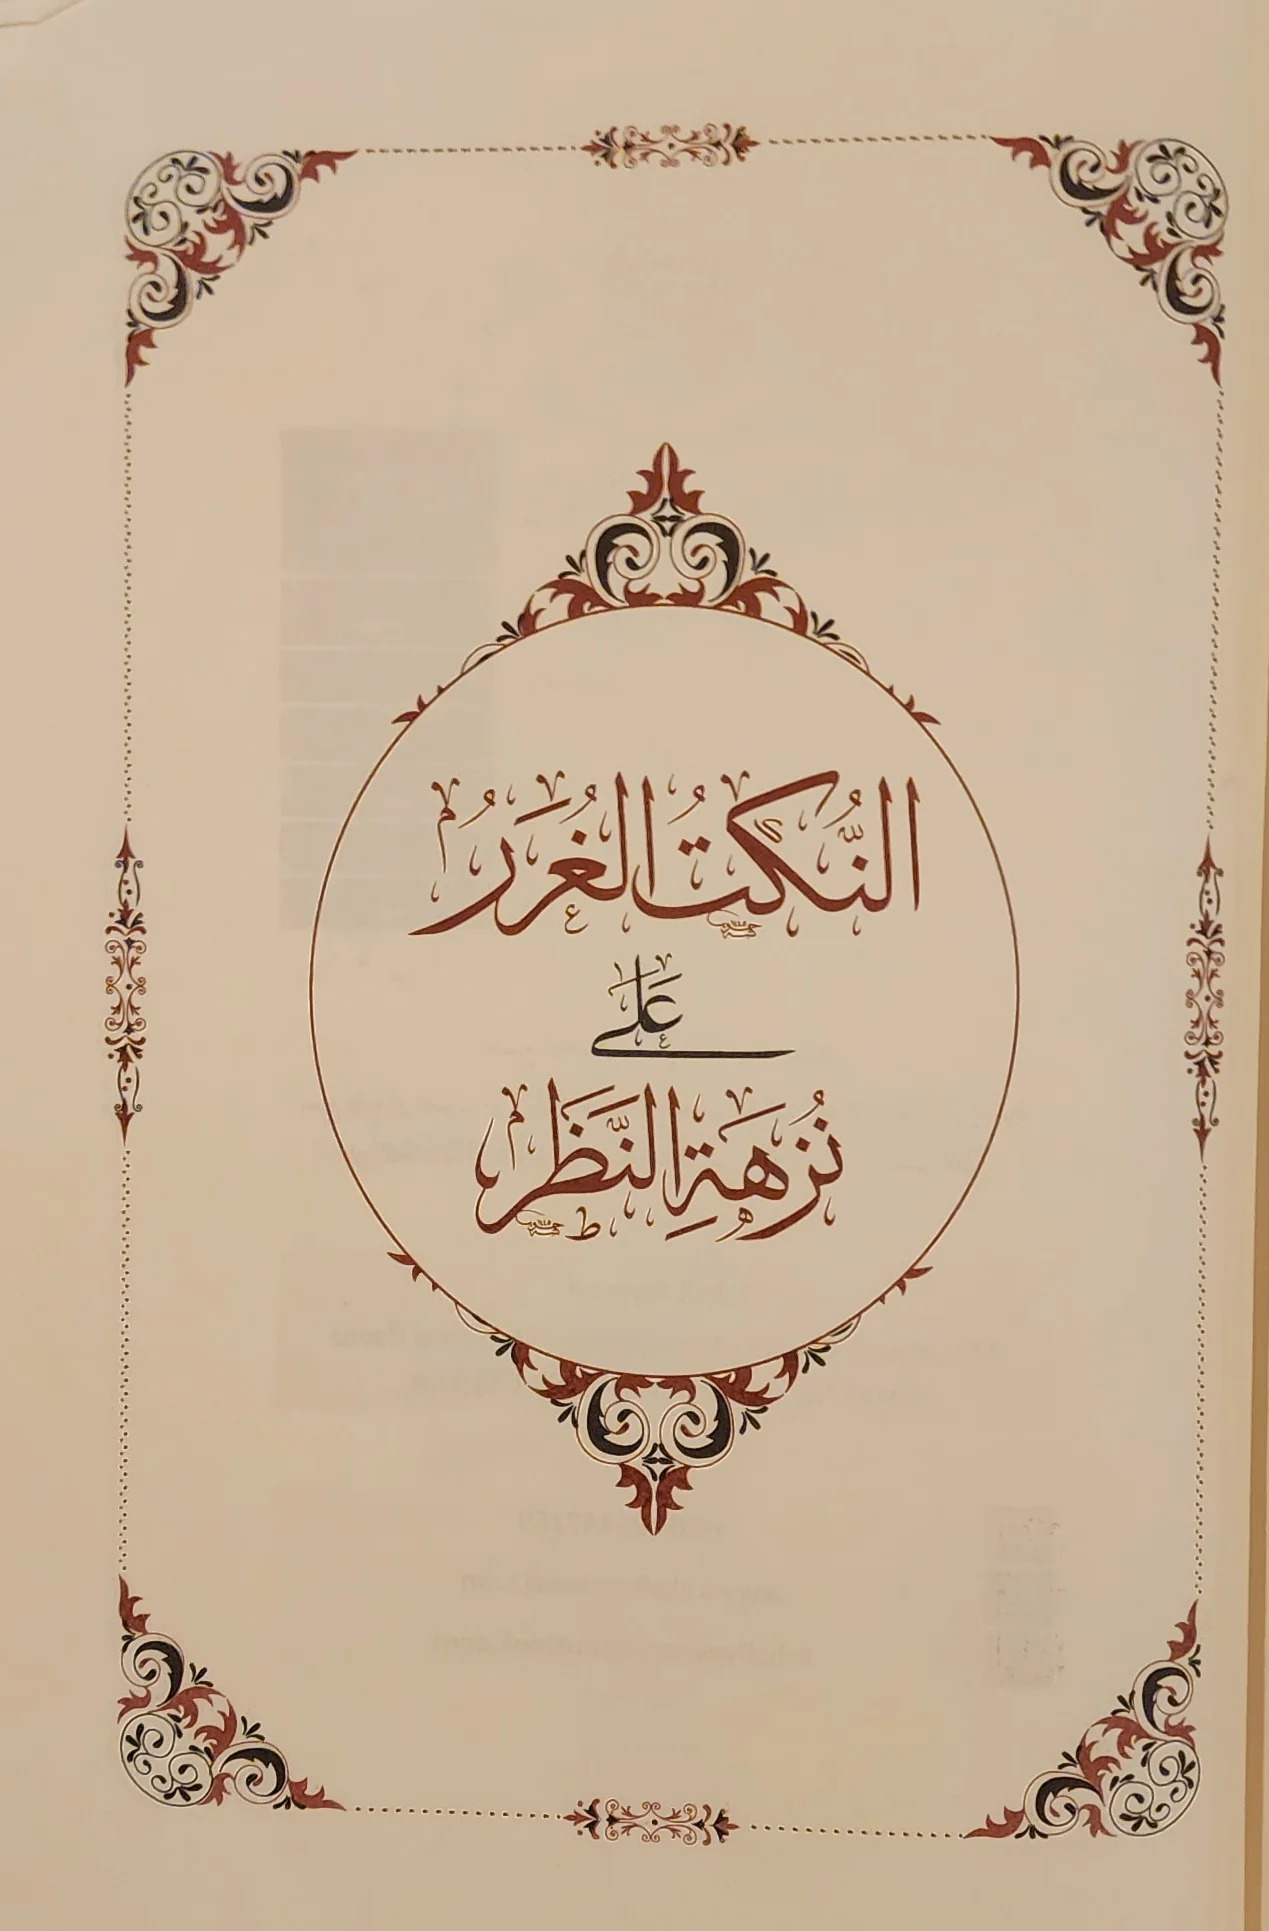 النُّكَتُ الغُرَرُ
عَلَى
نُزْهَةِ النَّظَرِ